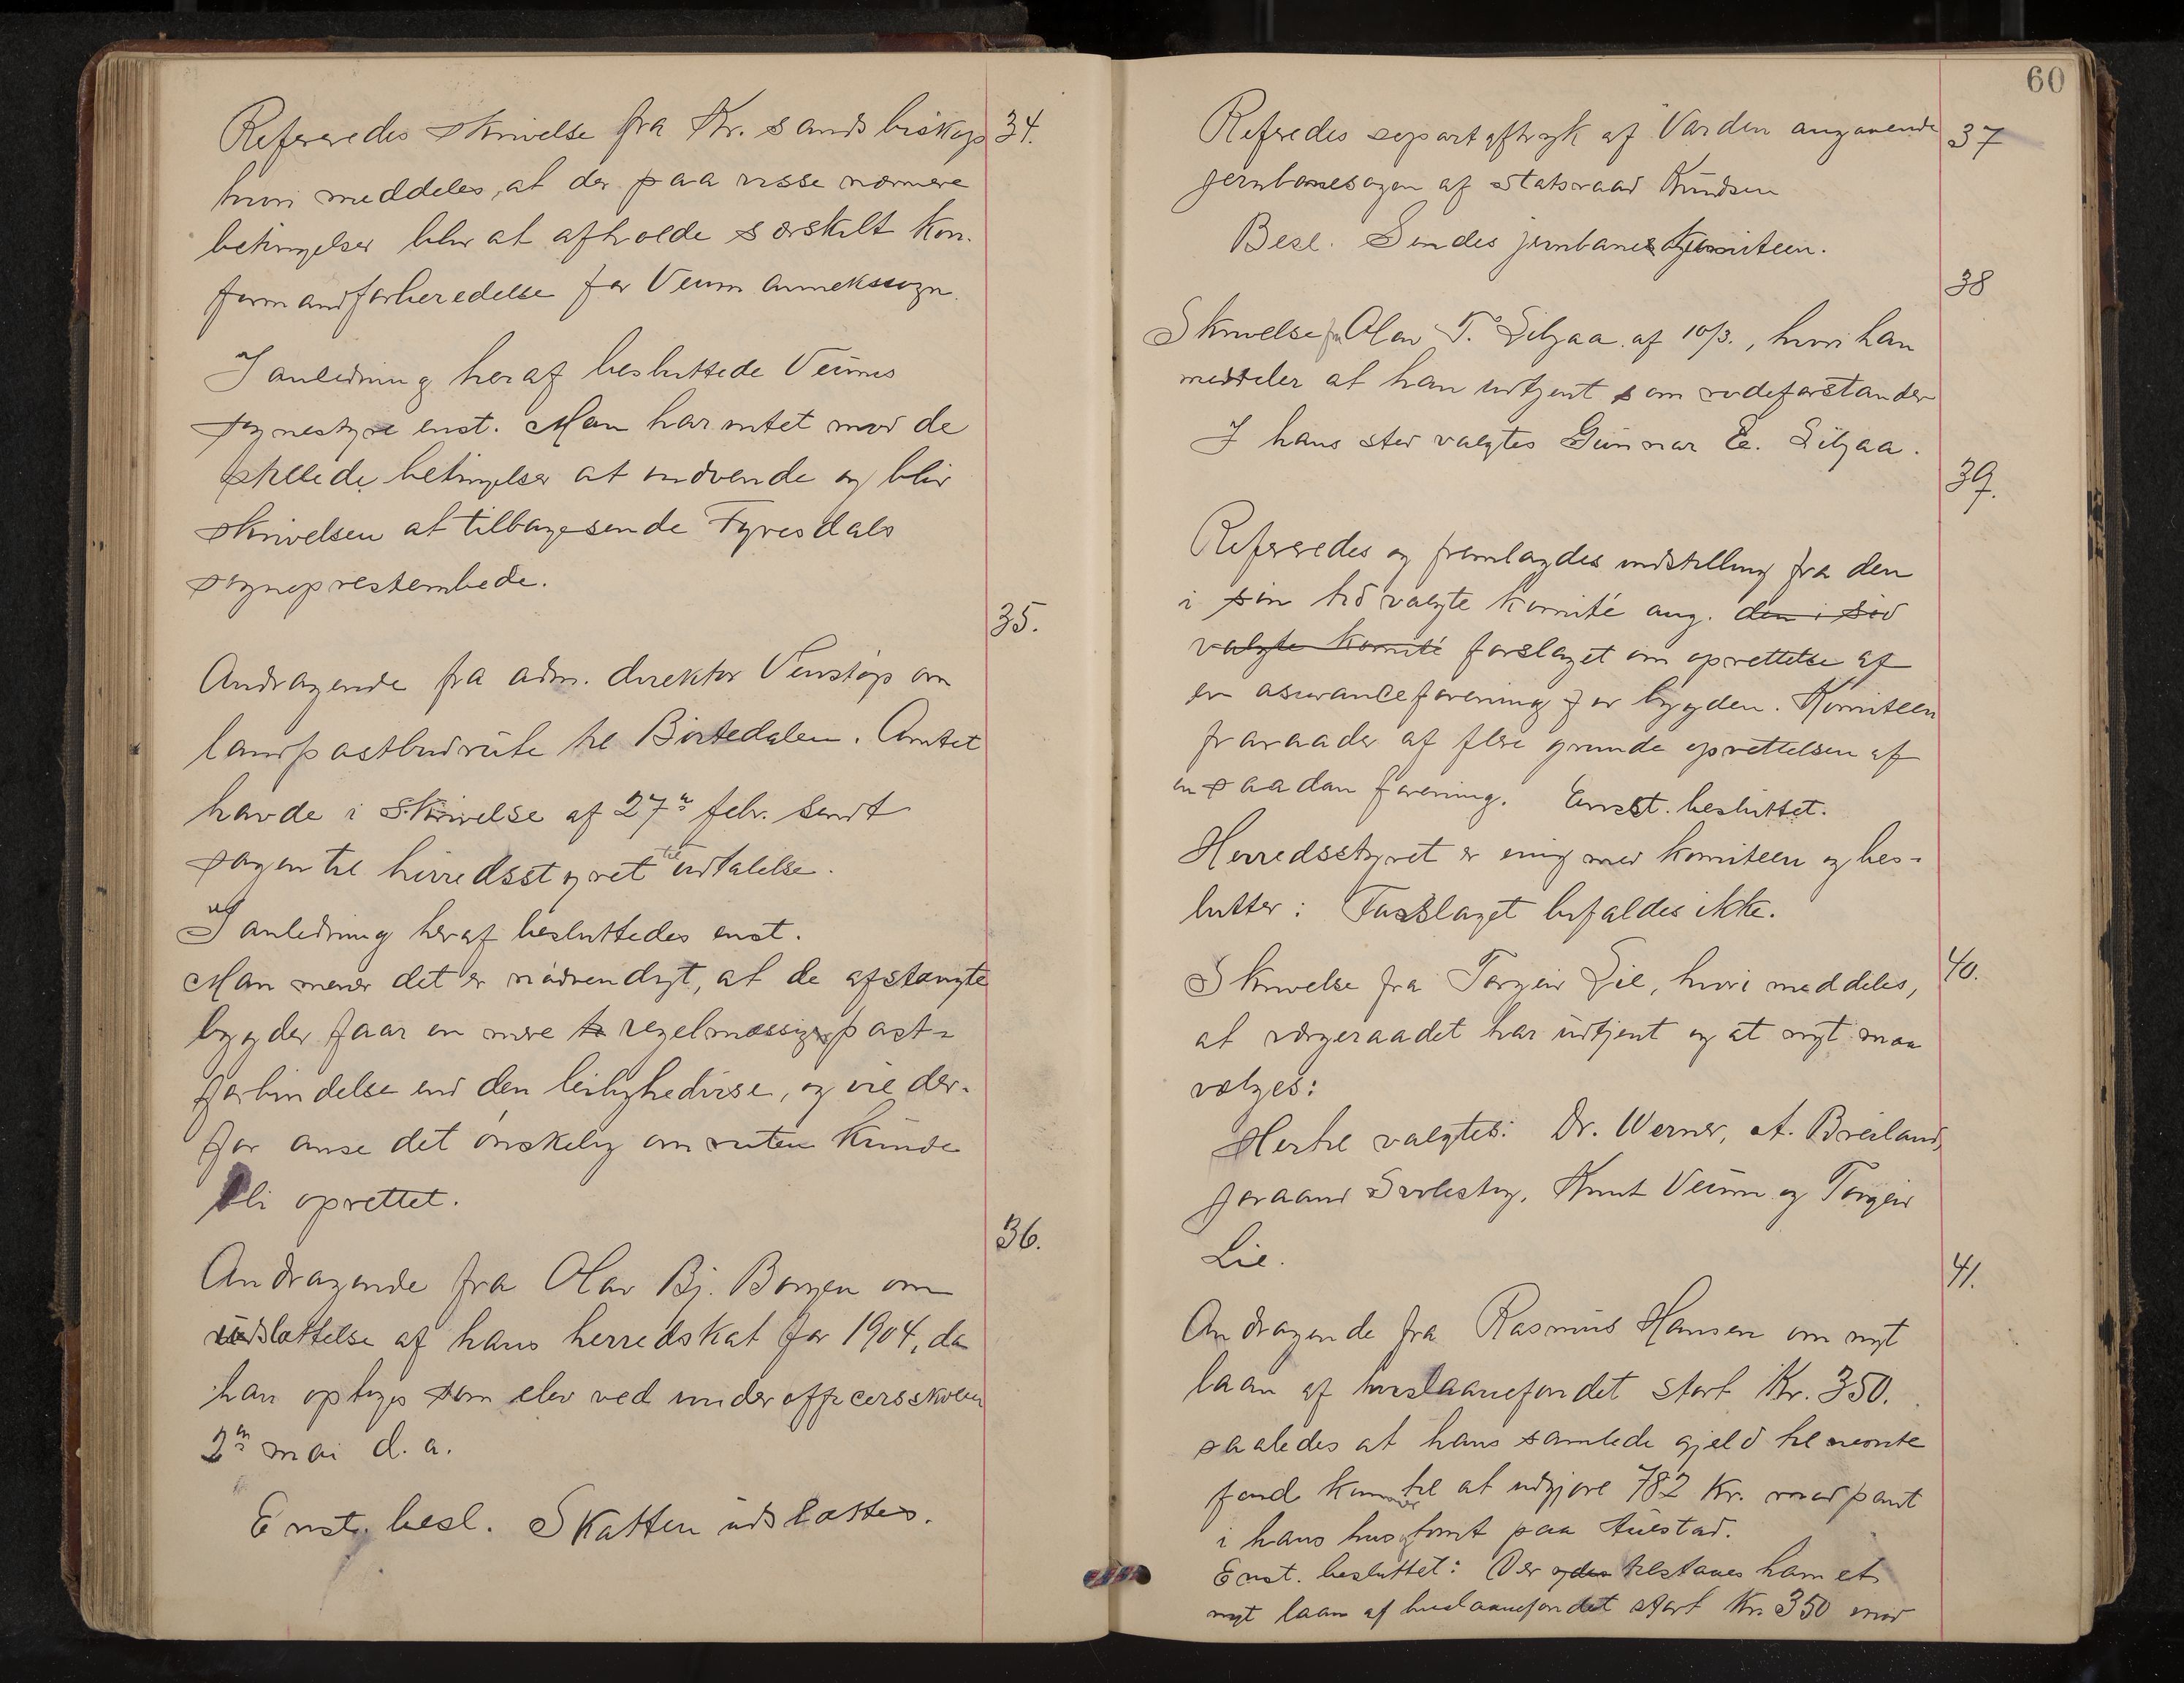 Refereredes skrivelse fra Kr.sands biskop 34.
hvori meddeles, at der paa visse nærmere
betingelser blir at afholde særskilt kon-
firmandforberedelse for Veum annekssogn.
I anledning heraf besluttede Veums
sognestyre enst. Man har intet mod de
stillede betingelser at indvende og blir
skrivelsen at tilbagesende Tyresdals
sogneprestembede.
35.
Andragende fra adm. direktør Venstøp om
landpostbudrute til Birtedalen. Amtet
havde i skrivelse af 27de febr. sendt
sagen til herredsstyret til udtalelse.
I anledning heraf besluttedes enst.
Man mener det er nødvendigt, at de afstængte
bygder faar en mere regelmæssig post-
forbindelse end den leilighedsvise, og vil der-
for anse det ønskelig om ruten kunde
bli oprettet.
36.
Andragende fra Olav Bj. Borgen om
udslættelse af hans herredskat for 1904, da
han optages som elev ved underofficersskolen
2den mai d. a.
Enst. besl. Skatten udslættes.
60
Referedes separtaftryk af Varden angaaende 37
jernbanesagen af statsraad Knudsen
Besl. Sendes jernbanekomiteen.
38
Skrivelse fra Olav T. Liljaa af 10/3., hvori han
meddeler at han udtjent som rodeforstander
I hans sted valgtes Gunnar E. Liljaa.
39.
Refereredes og fremlagdes indstilling fra den
i sin tid valgte komité ang. den i sid
valgte komité forslaget om oprettelse af
en assuranceforening for bygden. Komiteen
fraraader af flere grunde oprettelsen af
en saadan forening. Enst. besluttet.
Herredsstyret er enig med komiteen og bes-
lutter: Forslaget bifaldes ikke.
Skrivelse fra Torgeir Lie, hvori meddeles, 40.
at værgeraadet har udtjent og at nyt maa
vælges:
Hertil valgtes: Dr. Werner, A. Breiland,
Joraand Svolestøg, Knut Veum og Torgeir
Lie.
41.
Andragende fra Rasmus Hansen om nyt
laan af huslaanefondet stort Kr. 350.
saaledes at hans samlede gjeld til nevnte
fond kommer til at udgjøre 782 Kr. mod pant
i hans hus og tomt paa
Enst. besluttet: Der ydes tilstaaes ham et
nyt laan af huslaanefondet stort Kr. 350 mod